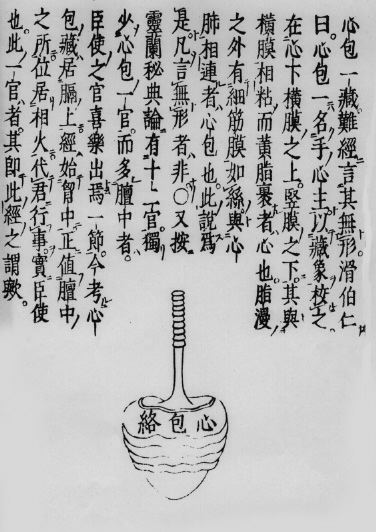 心包一藏難經言其無形滑伯仁
曰心包一名手心主以藏象校之
在心下橫膜之上竪膜之下其與
橫膜相粘而黃脂裹者心也脂漫
之外有細筋膜如絲與心
肺相連者心包也此說爲
是凡言無形者非○又按
靈蘭秘典論有十二官獨
少心包一官而多膻中者
臣使之官喜樂出焉一節今考心
包藏居膈上經始胷中正值膻中
之所位居相火代君行事實臣使
也此一官者其即此經之謂歟
絡包心